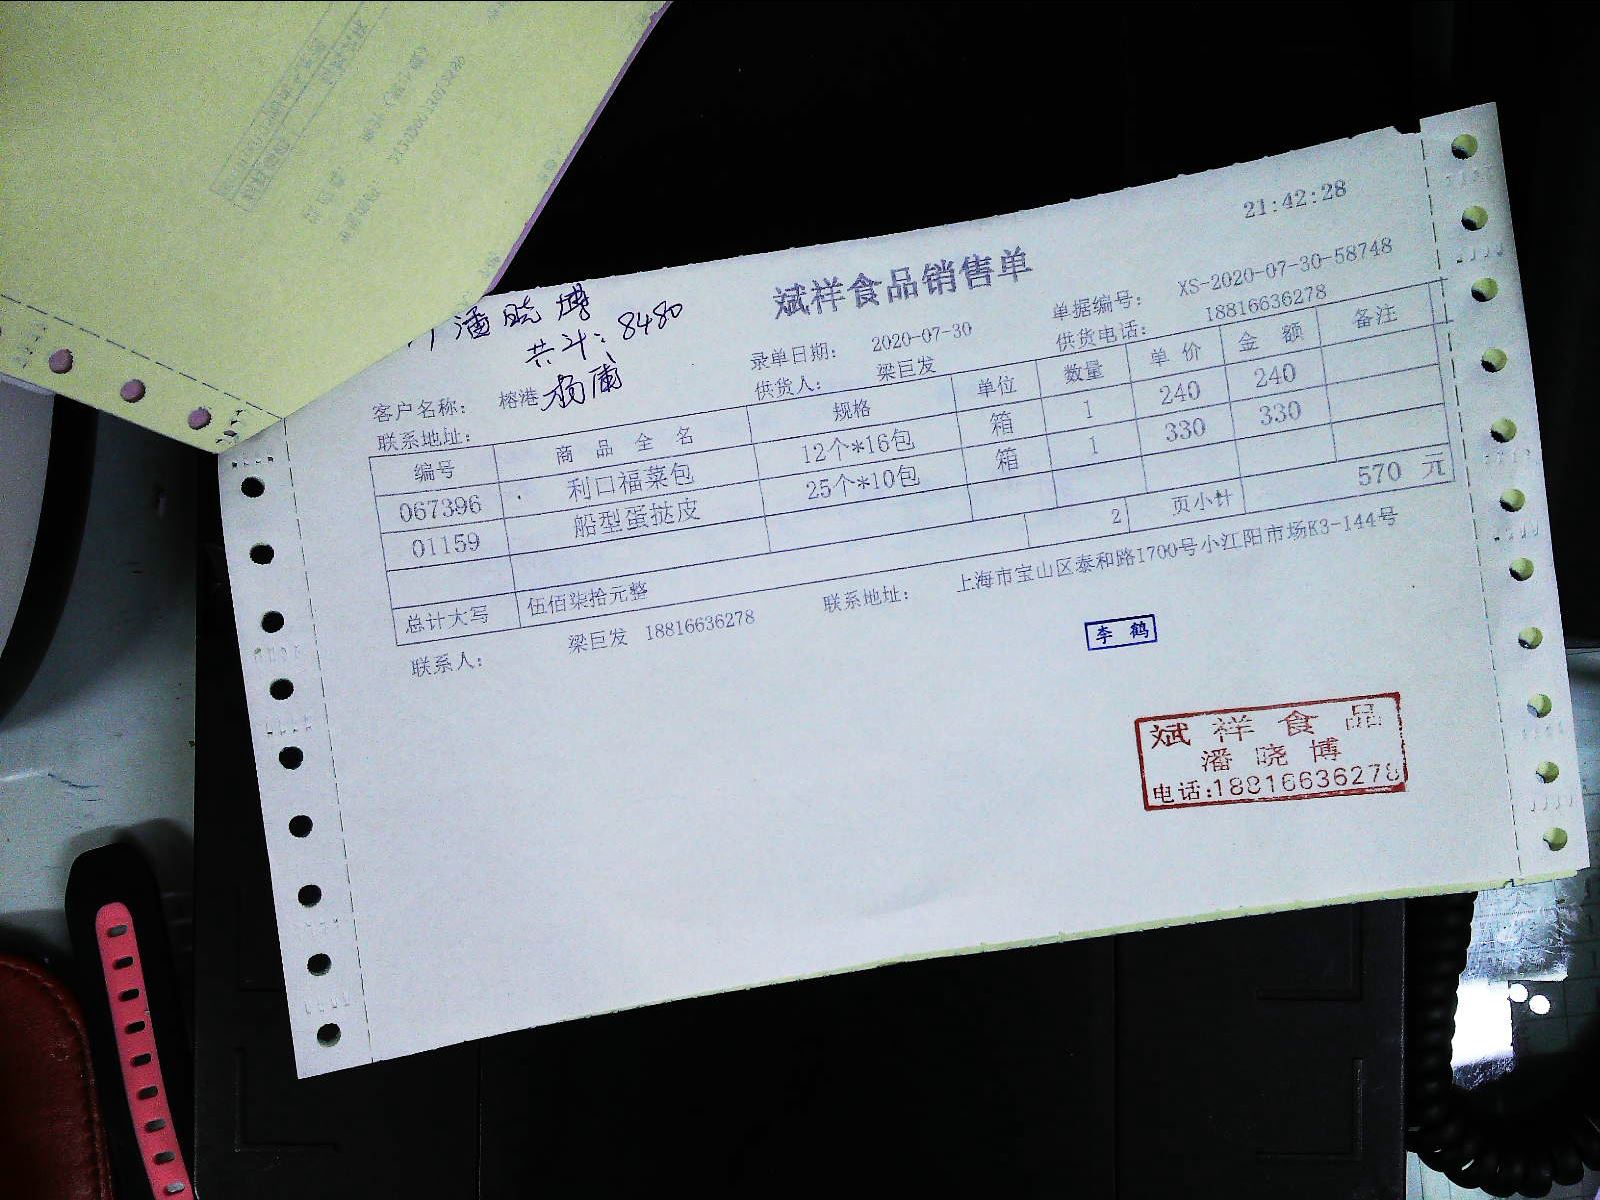 21:42:28
斌祥食品销售单
潘晓博
共计:8480
录单日期: 2020-07-30 单据编号: XS-2020-07-30-58748
客户名称: 榕港 供货人: 梁巨发 供货电话: 18816636278
联系地址:
编号 商品全名 规格 单位 数量 单价 金额 备注
067396 利口福菜包 12个*16包 箱 1 240 240
01159 船型蛋挞皮 25个*10包 箱 1 330 330
2 页小计 570 元
总计大写 伍佰柒拾元整
联系人: 梁巨发 18816636278 联系地址: 上海市宝山区泰和路1700号小江阳市场K3-144号
李鹤
斌祥食品
潘晓博
电话:18816636278